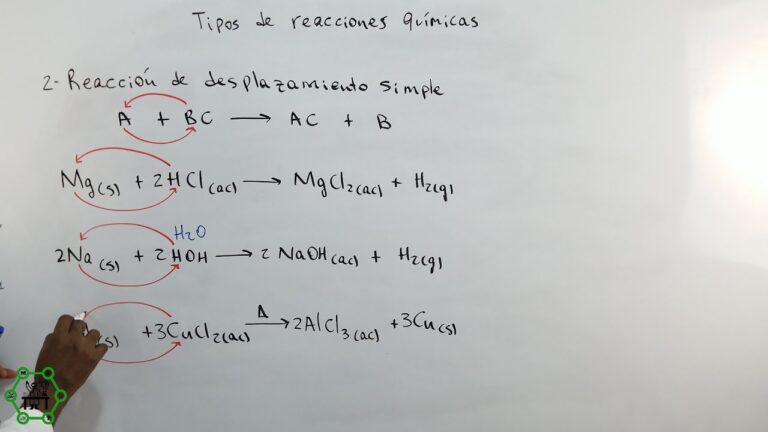 Tipos de reacciones químicas
2- Reacción de desplazamiento simple
A + BC → AC + B
Mg(s) + 2HCl(ac) → MgCl2(ac) + H2(g)
H2O
2Na(s) + 2HOH → 2NaOH(ac) + H2(g)
(s) + 3CuCl2(ac) Δ→ 2AlCl3(ac) + 3Cu(s)